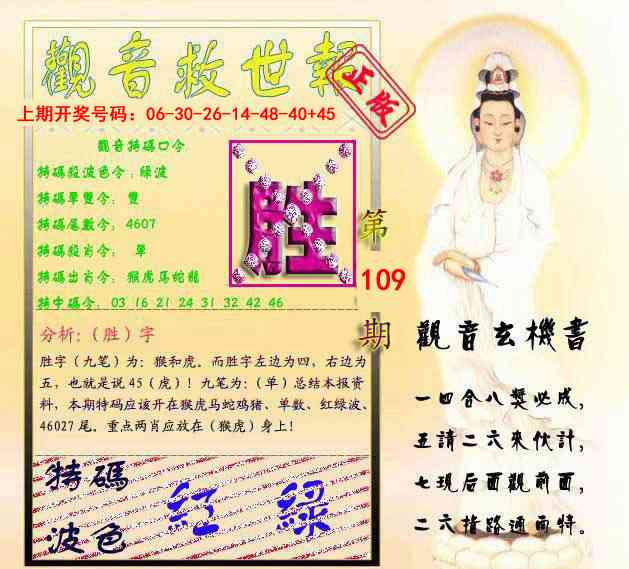 觀音救世報
正版
上期开奖号码：06-30-26-14-48-40+45
觀音特碼口令
特碼段波色令：綠波
特碼單雙令： 雙
特碼尾數令：4607
特碼段肖令： 單
特碼出肖令：猴虎馬蛇龍
特中碼令：03 16 21 24 31 32 42 46
胜
第
109
期
分析：（胜）字
胜字（九笔）为：猴和虎。而胜字左边为四，右边为
五，也就是说45（虎）！九笔为：（单）总结本报资
料，本期特码应该开在猴虎马蛇鸡猪、单数、红绿波、
46027尾。重点两肖应放在（猴虎）身上！
特碼
波色
紅 綠
觀音玄機書
一四合八獎必成，
五請二六來伙計，
七現后面觀前面，
二六指路通両特。